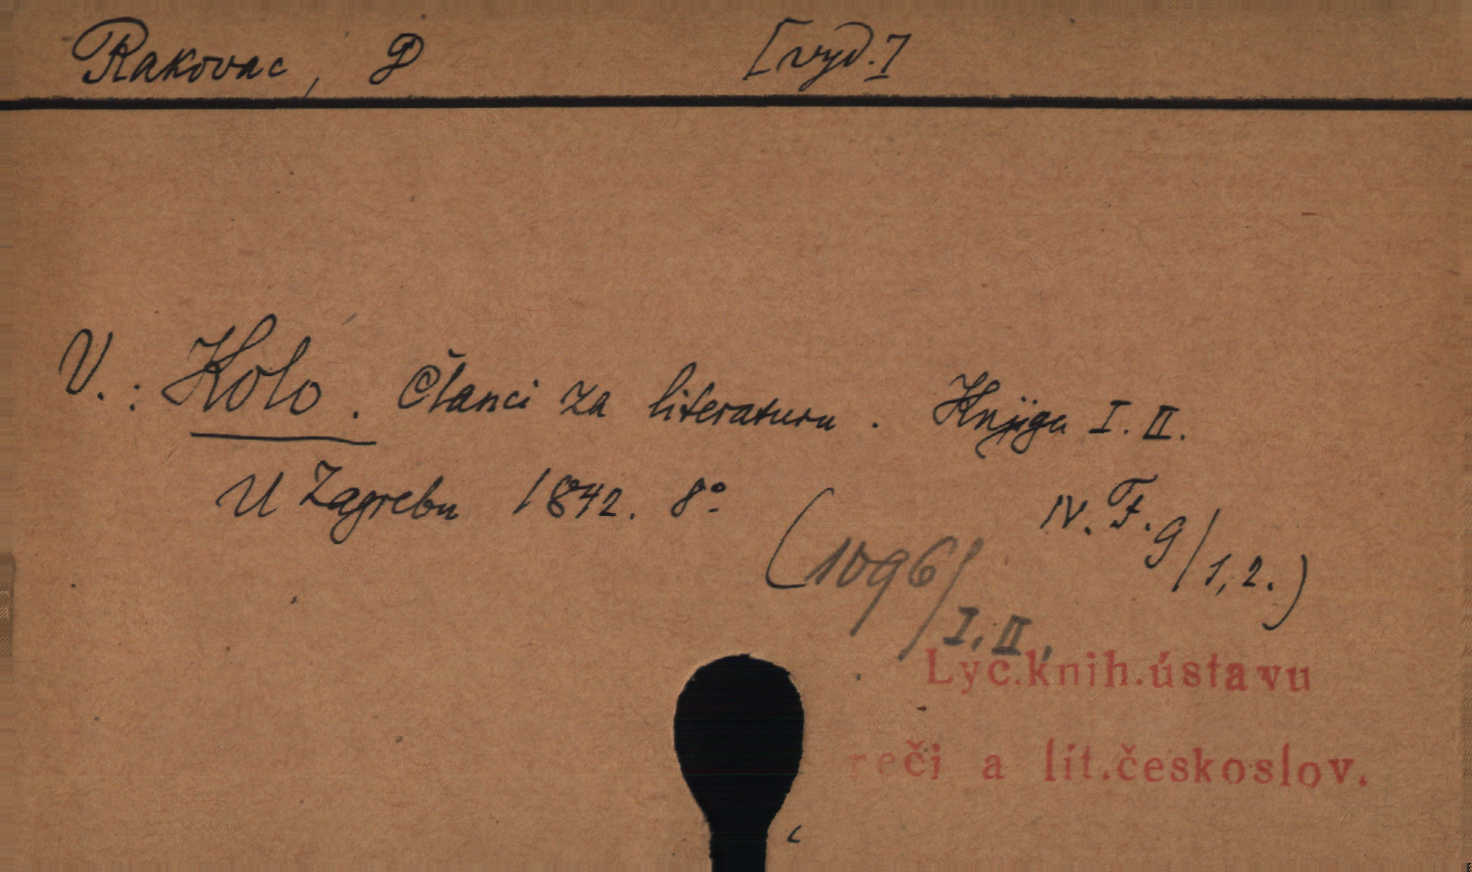 Rakovac, D [vyd.]
V.: Kolo. Članci za literaturu. Knjiga I. II.
U Zagrebu 1842. 8°
(1096/I. II, IV. F. 9/1, 2.)
Lyc.knih.ústavu
reči a lit.českoslov.